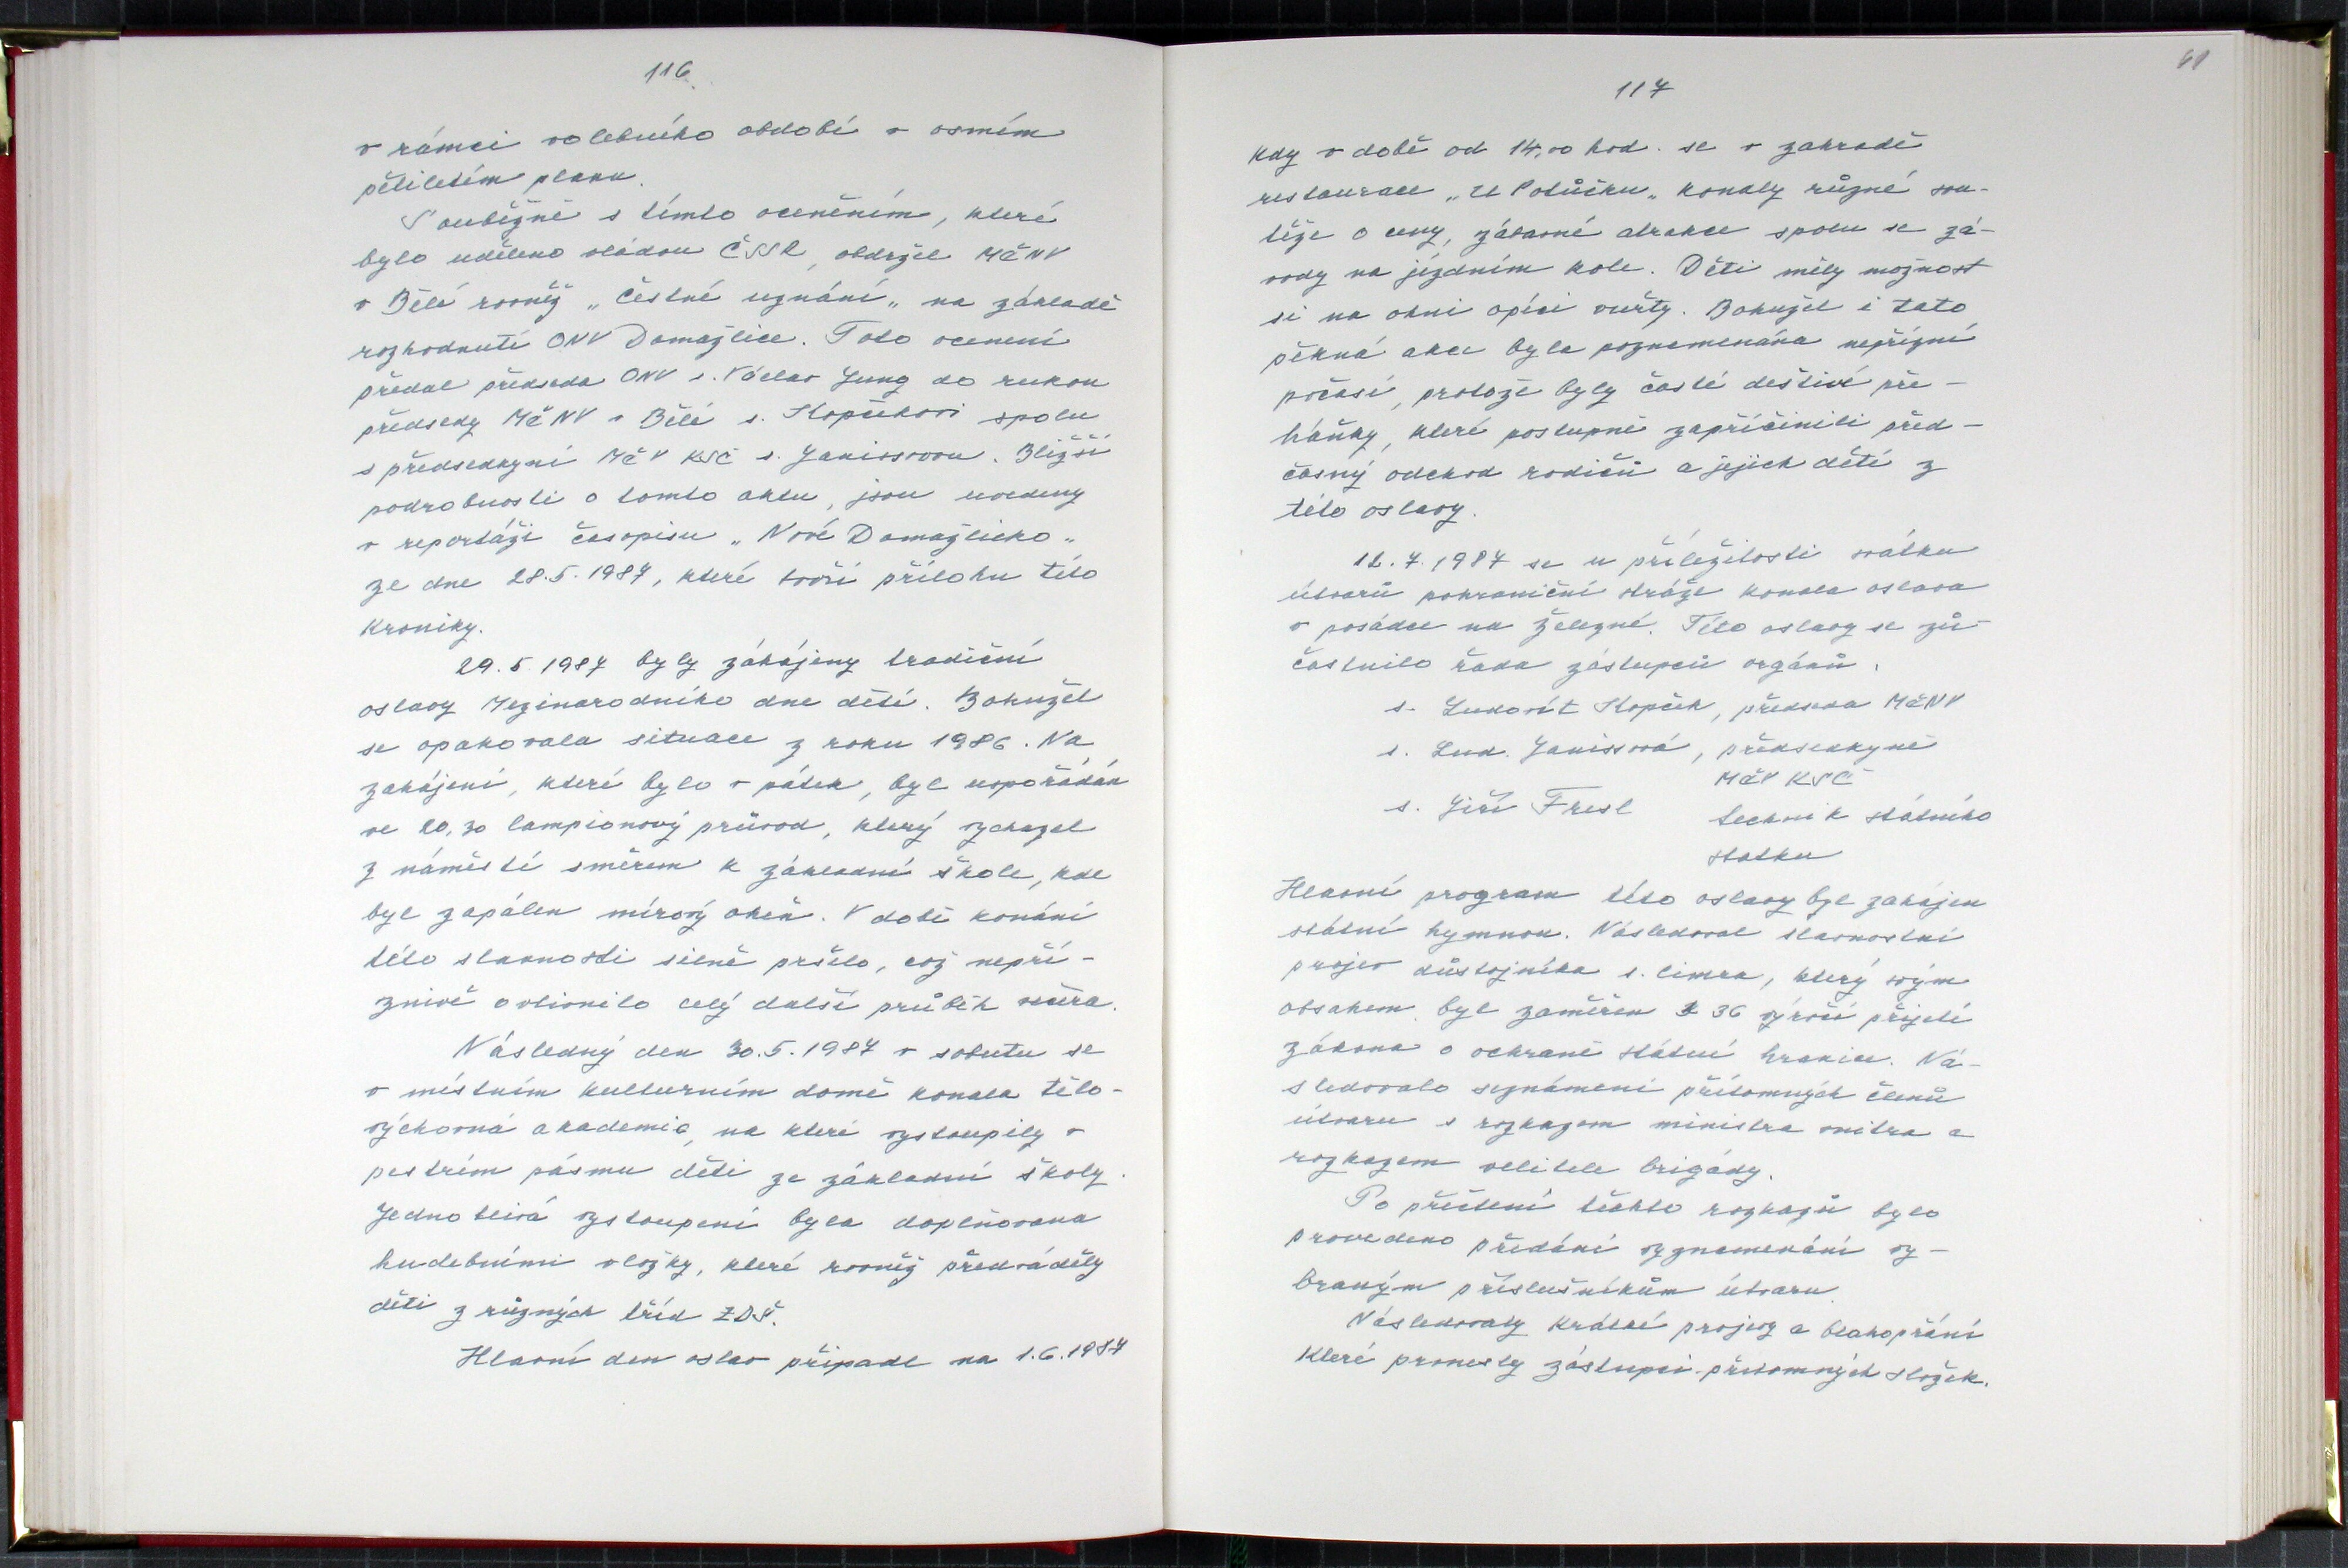 116
v rámci volebního období v osmém
pětiletém planu.
Souběžně s tímto oceněním, které
bylo uděleno vládou ČSSR, obdržel MěNV
v Bělé rovněž „Čestné uznání„ na základě
rozhodnutí ONV Domažlice. Toto ocenení
předal předseda ONV s. Václav Jung do rukou
předsedy MěNV v Bělé s. Kopčekovi spolu
s předsedkyní MěV KSČ s. Janissovou. Bližší
podrobnosti o tomto aktu, jsou uvedeny
v reportáži časopisu „Nové Domažlicko„
ze dne 28.5.1987, které tvoří přílohu této
Kroniky.
29.5.1987 byly zahájeny tradiční
oslavy Mezinarodního dne dětí. Bohužel
se opakovala situace z roku 1986. Na
zahájení, které bylo v pátek, byl uspořádán
ve 20,30 lampionový průvod, který vycházel
z náměstí směrem k základní škole, kde
byl zapálen mírový oheň. V době konání
této slavnosti silně pršelo, což nepří-
znivě ovlivnilo celý další průběh večera.
Následný den 30.5.1987 v sobutu se
v místním kulturním domě konala tělo-
výchovná akademie, na které vystoupily v
pestrém pásmu děti ze základní školy.
Jednotlivá vystoupení byla doplňovana
hudebními vložky, které rovněž předváděly
děti z různých tříd ZDŠ.
Hlavní den oslav připadl na 1.6.1987
61
117
kdy v době od 14,00 hod. se v zahradě
restaurace „U Potůčku„ konaly různé sou-
těže o ceny, zábavné atrakce spolu se zá-
vody na jízdním kole. Děti měly možnost
si na ohni opéci vuřty. Bohužel i tato
pěkná akce byla poznamenána nepřízní
počasí, protože byly časté deštivé pře-
háňky, které postupně zapříčinili před-
časný odchod rodičů a jejich dětí z
této oslavy.
12.7.1987 se u příležitosti svátku
útvarů pohraniční stráže konala oslava
v posádce na Železné. Této oslavy se zú-
častnilo řada zástupců orgánů.
s. Ludovít Kopček, předseda MěNV
s. Lud. Janissová, předsedkyně
MěV KSČ
s. Jiří Fresl technik státního
statku
Hlavní program této oslavy byl zahájen
státní hymnou. Následoval slavnostní
projev důstojníka s. Cimra, který svým
obsahem byl zaměřen k 36 výročí přijetí
zákona o ochraně státní hranice. Ná-
sledovalo seznámení přítomných členů
útvaru s rozkazem ministra vnitra a
rozkazem velitele brigády.
Po přečtení těchto rozkazů bylo
provedeno předání vyznamenání vy-
braným příslušníkům útvaru.
Následovaly krátké projevy a blahopřání
které pronesly zástupci přítomných složek.